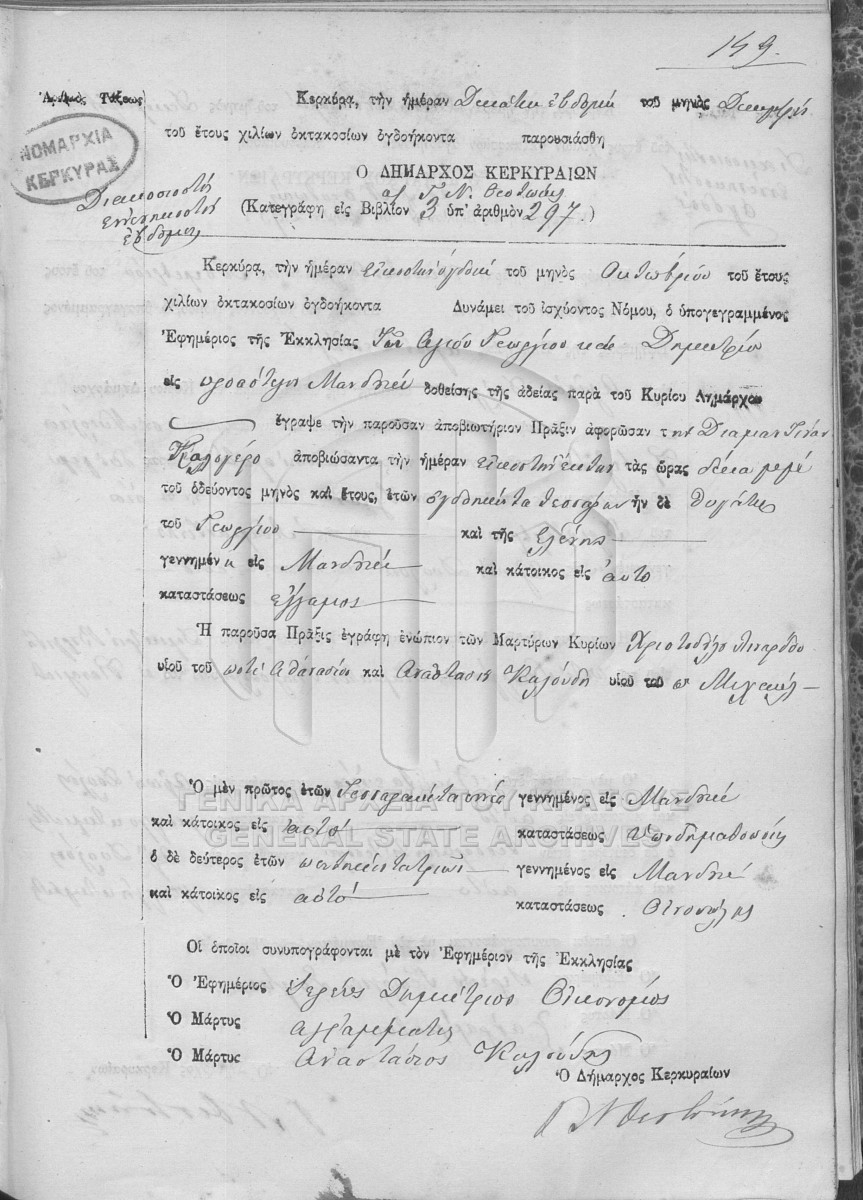 149.
Ἀριθμὸς Τάξεως
ΝΟΜΑΡΧΙΑ
ΚΕΡΚΥΡΑΣ
Διακοσιοστή
ἐννενηκοστή
ἑβδόμη
Κερκύρᾳ, τὴν ἡμέραν Δεκάτη ἑβδόμη τοῦ μηνὸς
τοῦ ἔτους χιλίων ὀκτακοσίων ὀγδοήκοντα παρουσιάσθη
Ὁ ΔΗΜΑΡΧΟΣ ΚΕΡΚΥΡΑΙΩΝ
Γ. Ν. Θεοτόκης
(Κατεγράφη εἰς Βιβλίον 3 ὑπ' ἀριθμὸν 297.)
Κερκύρᾳ, τὴν ἡμέραν εἰκοστὴν ὀγδόην τοῦ μηνὸς Ὀκτωβρίου τοῦ ἔτους
χιλίων ὀκτακοσίων ὀγδοήκοντα Δυνάμει τοῦ ἰσχύοντος Νόμου, ὁ ὑπογεγραμμένος
Ἐφημέριος τῆς Ἐκκλησίας Τοῦ Ἁγίου Γεωργίου καὶ Δημητρίου
εἰς προάστειον Μανδούκι δοθείσης τῆς ἀδείας παρὰ τοῦ Κυρίου Δημάρχου
ἔγραψε τὴν παροῦσαν ἀποβιωτήριον Πρᾶξιν ἀφορῶσαν τὴν Διαμαντίναν
Καλογέρο ἀποβιώσαντα τὴν ἡμέραν εἰκοστὴν ἕκτην τὰς ὥρας δέκα
τοῦ ὁδεύοντος μηνὸς καὶ ἔτους, ἐτῶν ὀγδοήκοντα τεσσάρων ἦν δὲ θυγάτηρ
τοῦ Γεωργίου καὶ τῆς Ἑλένης
γεννημένη εἰς Μανδούκι καὶ κάτοικος εἰς αὐτό
καταστάσεως ἔγγαμος
Ἡ παροῦσα Πρᾶξις ἐγράφη ἐνώπιον τῶν Μαρτύρων Κυρίων Χριστοδούλο
υἱοῦ τοῦ ποτέ Ἀθανασίου καὶ Ἀναστάσιο Καλούδη υἱοῦ τοῦ π Μιχαήλ
Ὁ μὲν πρῶτος ἐτῶν Τεσσαράκοντα γεννημένος εἰς Μανδούκι
ΓΕΝΙΚΑ ΑΡΧΕΙΑ ΤΟΥ ΚΡΑΤΟΥΣ
καὶ κάτοικος εἰς αὐτό καταστάσεως ὑποδηματοποιός
GENERAL STATE ARCHIVES
ὁ δὲ δεύτερος ἐτῶν πεντήκοντα τριῶν γεννημένος εἰς Μανδούκι
καὶ κάτοικος εἰς αὐτό καταστάσεως Οἰνοπώλης
Οἱ ὁποῖοι συνυπογράφονται μὲ τὸν Ἐφημέριον τῆς Ἐκκλησίας
Ὁ Ἐφημέριος Ἱερεὺς Δημήτριος Οἰκονόμος
Ὁ Μάρτυς ἀγράμματος
Ὁ Μάρτυς Ἀναστάσιος Καλούδης
Ὁ Δήμαρχος Κερκυραίων
Γ Ν Θεοτόκης